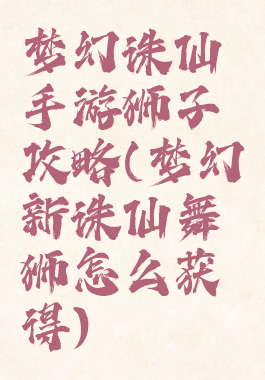 梦幻诛仙
手游狮子
攻略(梦幻
新诛仙舞
狮怎么获
得)